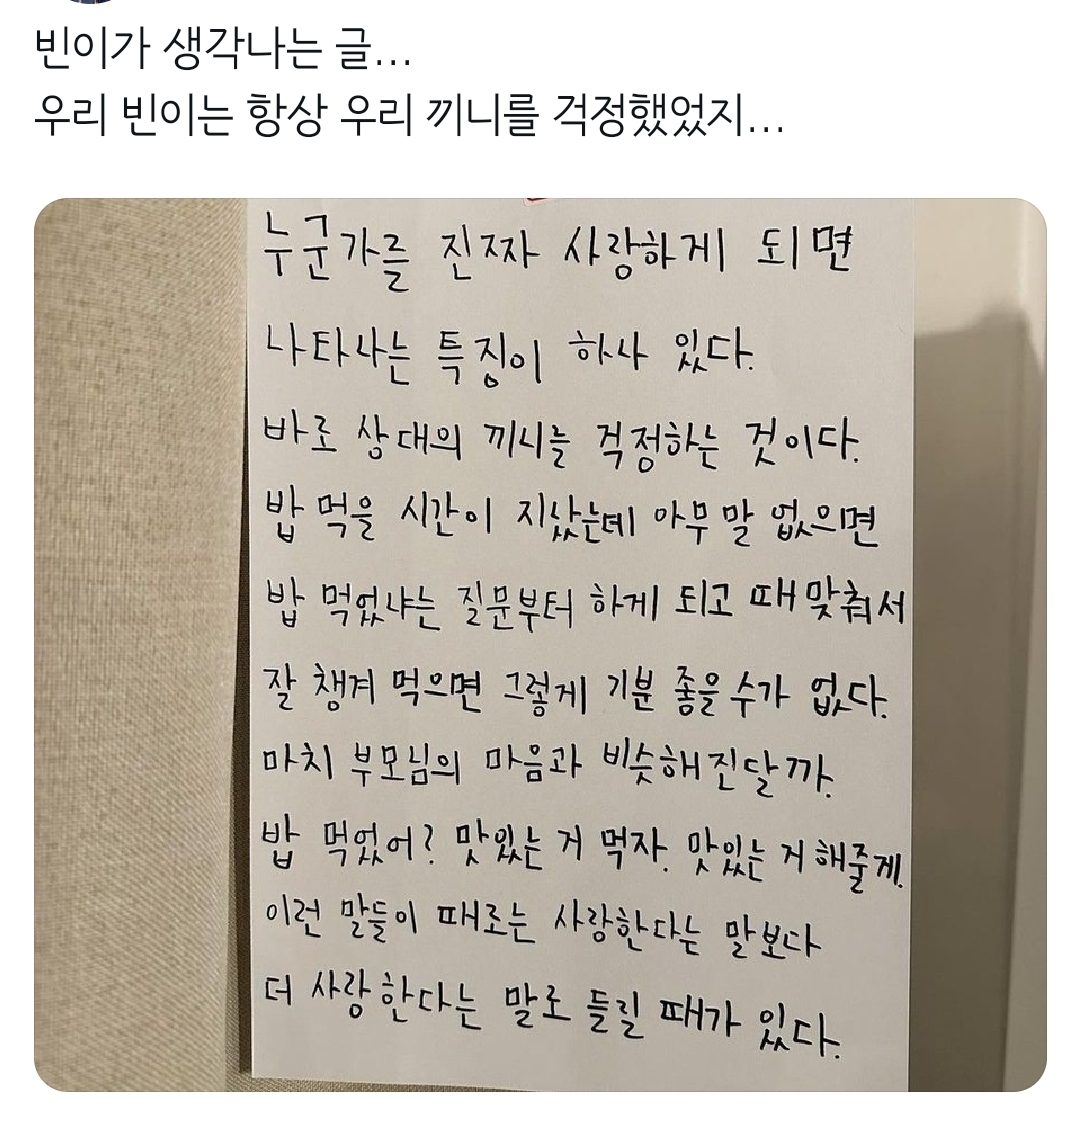 빈이가 생각나는 글...
우리 빈이는 항상 우리 끼니를 걱정했었지...
누군가를 진짜 사랑하게 되면
나타나는 특징이 하나 있다.
바로 상대의 끼니를 걱정하는 것이다.
밥 먹을 시간이 지났는데 아무 말 없으면
밥 먹었냐는 질문부터 하게 되고 때 맞춰서
잘 챙겨 먹으면 그렇게 기분 좋을 수가 없다.
마치 부모님의 마음과 비슷해진달까.
밥 먹었어? 맛있는 거 먹자. 맛있는 거 해줄게.
이런 말들이 때로는 사랑한다는 말보다
더 사랑한다는 말로 들릴 때가 있다.